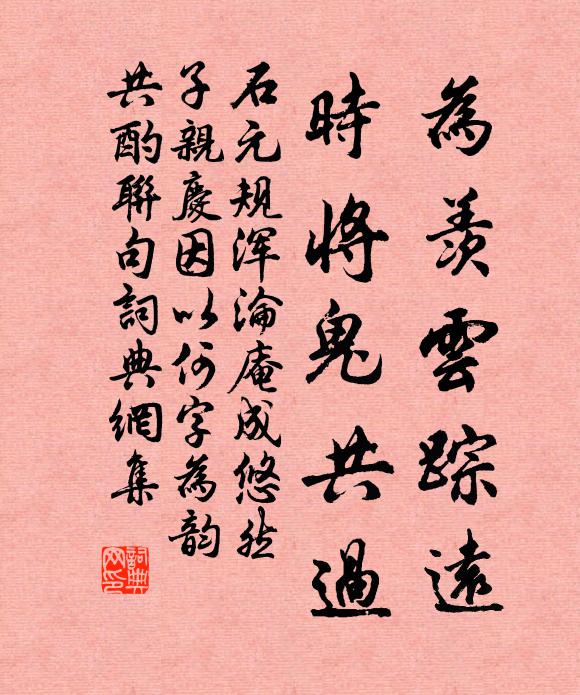 為羨雲踪遠
時將鬼共過
石元規渾淪庵成悠然
子親慶因以何字為韵
共酌聯句詞典網集
詞典
网印